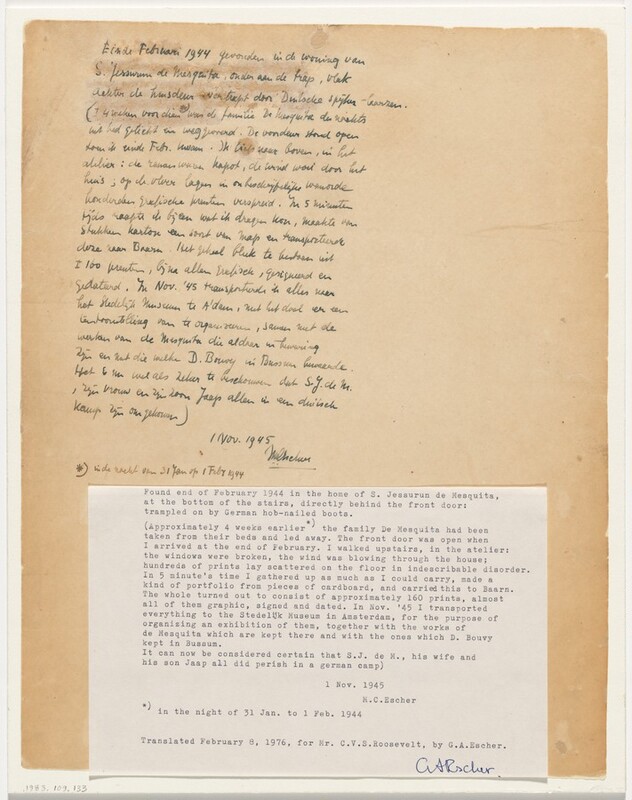 Einde Februari 1944 gevonden in de woning van
S. Jessurun de Mesquita, onder aan de trap, vlak
achter de huisdeur vertrapt door Duitsche spijker-laarzen.
(± 4 weken voordien *) was de familie De Mesquita des nachts
uit bed gelicht en weggevoerd. De voordeur stond open
toen ik einde Febr. kwam. Ik liep naar boven, in het
atelier: de ramen waren kapot, de wind woei door het
huis; op de vloer lagen in onbeschrijfelijke wanorde
honderden grafische prenten verspreid. In 5 minuten
tijds raapte ik bijeen wat ik dragen kon, maakte van
stukken karton een soort van map en transporteerde
deze naar Baarn. Het geheel bleek te bestaan uit
± 160 prenten, bijna allen grafisch, gesigneerd en
gedateerd. In Nov. '45 transporteerde ik alles naar
het Stedelijk Museum te A'dam, met het doel er een
tentoonstelling van te organiseeren, samen met de
werken van de Mesquita die aldaar in bewaring
zijn en met die welke D. Bouvy in Bussum bewaarde.
Het is nu wel als zeker te beschouwen dat S.J. de M.,
zijn vrouw en zijn zoon Jaap allen in een duitsch
kamp zijn omgekomen)
1 Nov. 1945
MCEscher
*) in de nacht van 31 Jan op 1 Febr 1944
Found end of February 1944 in the home of S. Jessurun de Mesquita,
at the bottom of the stairs, directly behind the front door;
trampled on by German hob-nailed boots.
(Approximately 4 weeks earlier*) the family De Mesquita had been
taken from their beds and led away. The front door was open when
I arrived at the end of February. I walked upstairs, in the atelier:
the windows were broken, the wind was blowing through the house;
hundreds of prints lay scattered on the floor in indescribable disorder.
In 5 minute's time I gathered up as much as I could carry, made a
kind of portfolio from pieces of cardboard, and carried this to Baarn.
The whole turned out to consist of approximately 160 prints, almost
all of them graphic, signed and dated. In Nov. '45 I transported
everything to the Stedelijk Museum in Amsterdam, for the purpose of
organizing an exhibition of them, together with the works of
de Mesquita which are kept there and with the ones which D. Bouvy
kept in Bussum.
It can now be considered certain that S.J. de M., his wife and
his son Jaap all did perish in a german camp)
1 Nov. 1945
M.C.Escher
*) in the night of 31 Jan. to 1 Feb. 1944
Translated February 8, 1976, for Mr. C.V.S.Roosevelt, by G.A.Escher.
GAEscher.
1983.109.133